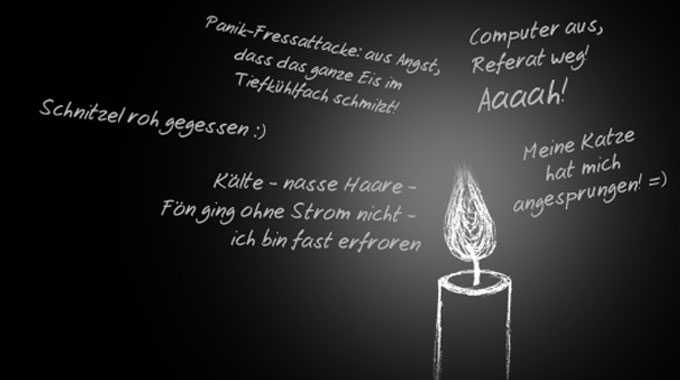 Panik-Fressattacke: aus Angst,
dass das ganze Eis im
Tiefkühlfach schmilzt!
Computer aus,
Referat weg!
Aaaah!
Schnitzel roh gegessen :)
Meine Katze
hat mich
angesprungen! =)
Kälte - nasse Haare -
Fön ging ohne Strom nicht -
ich bin fast erfroren